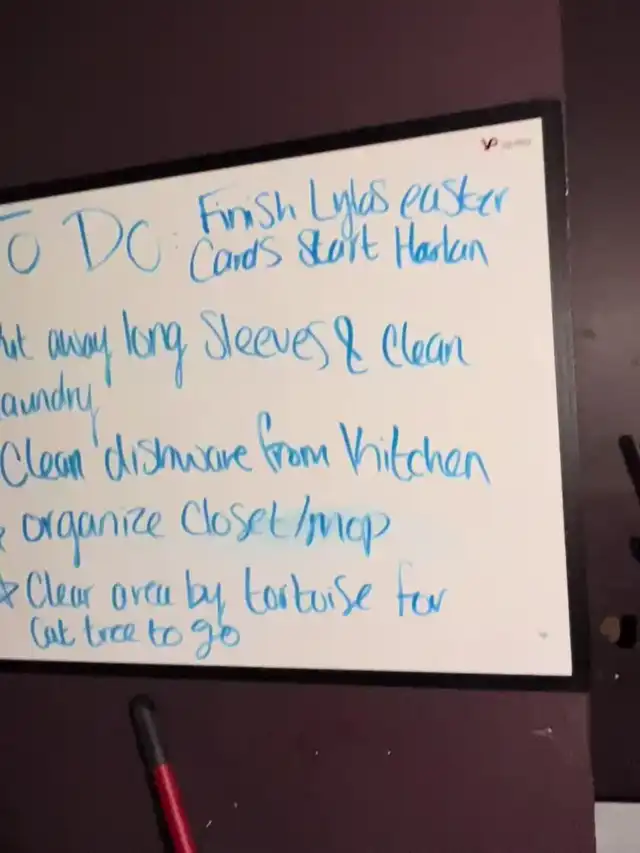 To Do: Finish Lylas easter
Cards Start Harlan
Put away long Sleeves & Clean
Laundry
Clean dishware from Kitchen
organize Closet/mop
Clear area by tortoise for
Cat tree to go